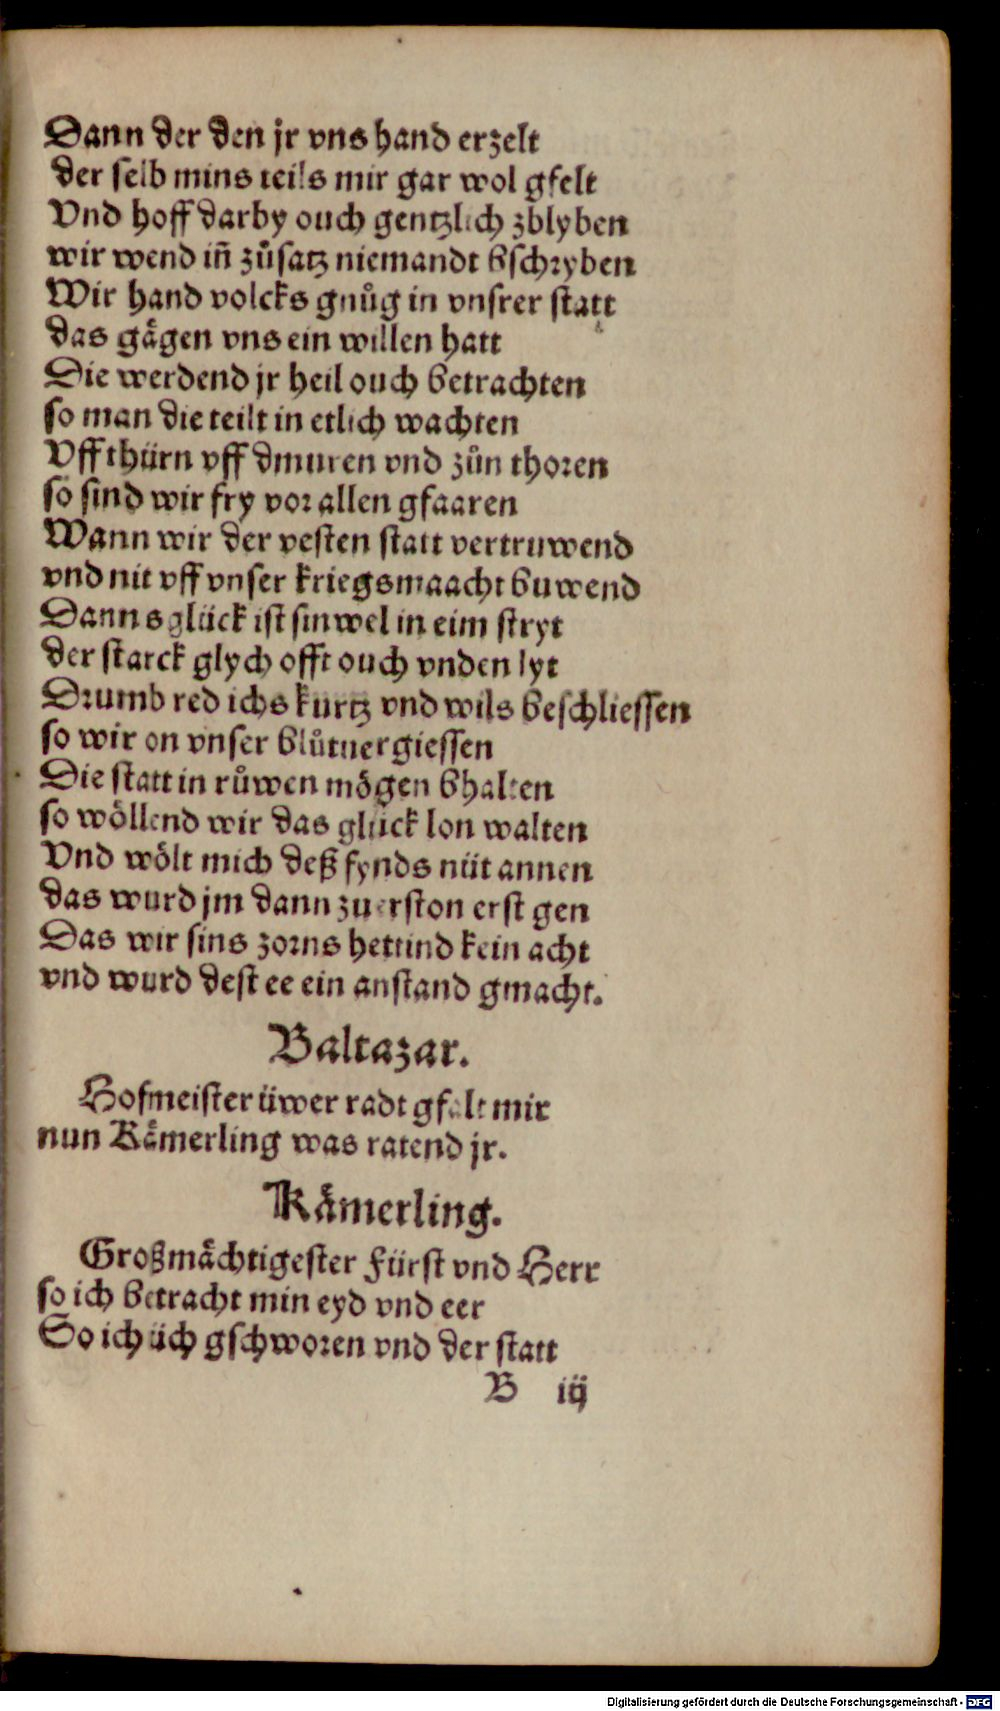 Dann der den jr vns hand erzelt
der selb mins teils mir gar wol gfelt
Vnd hoff darby ouch gentzlich zblyben
wir wend iñ zůsatz niemandt bschryben
Wir hand volcks gnůg in vnsrer statt
das gågen vns ein willen hatt
Die werdend jr heil ouch betrachten
so man die teilt in etlich wachten
Vff thürn vff dmuren vnd zůn thoren
so sind wir fry vor allen gfaaren
Wann wir der vesten statt vertruwend
vnd nit vff vnser kriegsmaacht buwend
Danns glück ist sinwel in eim stryt
der starck glych offt ouch vnden lyt
Drumb red ichs kurtz vnd wils beschliessen
so wir on vnser blůtuergiessen
Die statt in růwen mögen bhalten
so wöllend wir das glück lon walten
Vnd wölt mich deß fynds nüt annen
das wurd jm dann zuerston erst gen
Das wir sins zorns hettind kein acht
vnd wurd dest ee ein anstand gmacht.
Baltazar.
Hofmeister üwer radt gfalt mir
nun Kåmerling was ratend jr.
Kåmerling.
Großmåchtigester Fürst vnd Herr
so ich betracht min eyd vnd eer
So ich üch gschworen vnd der statt
B iij
Digitalisierung gefördert durch die Deutsche Forschungsgemeinschaft - DFG